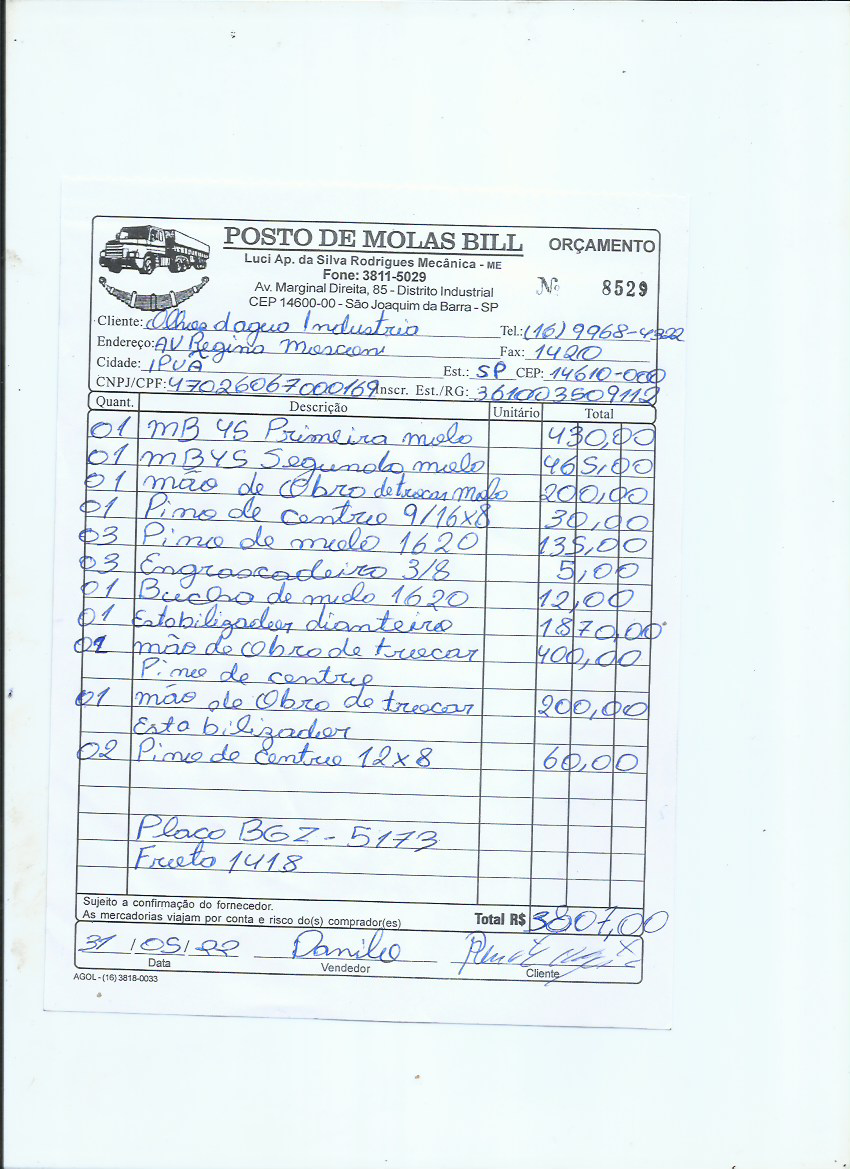 POSTO DE MOLAS BILL
ORÇAMENTO
Luci Ap. da Silva Rodrigues Mecânica - ME
Fone: 3811-5029
Av. Marginal Direita, 85 - Distrito Industrial
CEP 14600-00 - São Joaquim da Barra - SP
Nº 8529
Cliente: Olhos dagua Industria Tel.: (16) 9968-4322
Endereço: AV Regina Mosconi Fax: 1420
Cidade: IPUÃ Est.: SP CEP: 14610-000
CNPJ/CPF: 47026067000169 Inscr. Est./RG: 361003509112
Quant. Descrição Unitário Total
01 MB 45 Primeira mola 430,00
01 MB45 Segunda mola 465,00
01 mão de Obra de trocar Mola 200,00
01 Pino de centro 9/16x8 30,00
03 Pino de mola 1620 135,00
03 Engraxadeira 3/8 5,00
01 Bucha de mola 1620 12,00
01 Estabilizador dianteiro 1870,00
mão de Obra de trocar 400,00
Pino de centro
01 mão de Obra de trocar 200,00
Estabilizador
02 Pino de centro 12x8 60,00
Placa BGZ-5173
Frota 1418
Sujeito a confirmação do fornecedor.
As mercadorias viajam por conta e risco do(s) comprador(es) Total R$ 3807,00
31/05/22 Danilo
Data Vendedor Cliente
AGOL - (16) 3818-0033